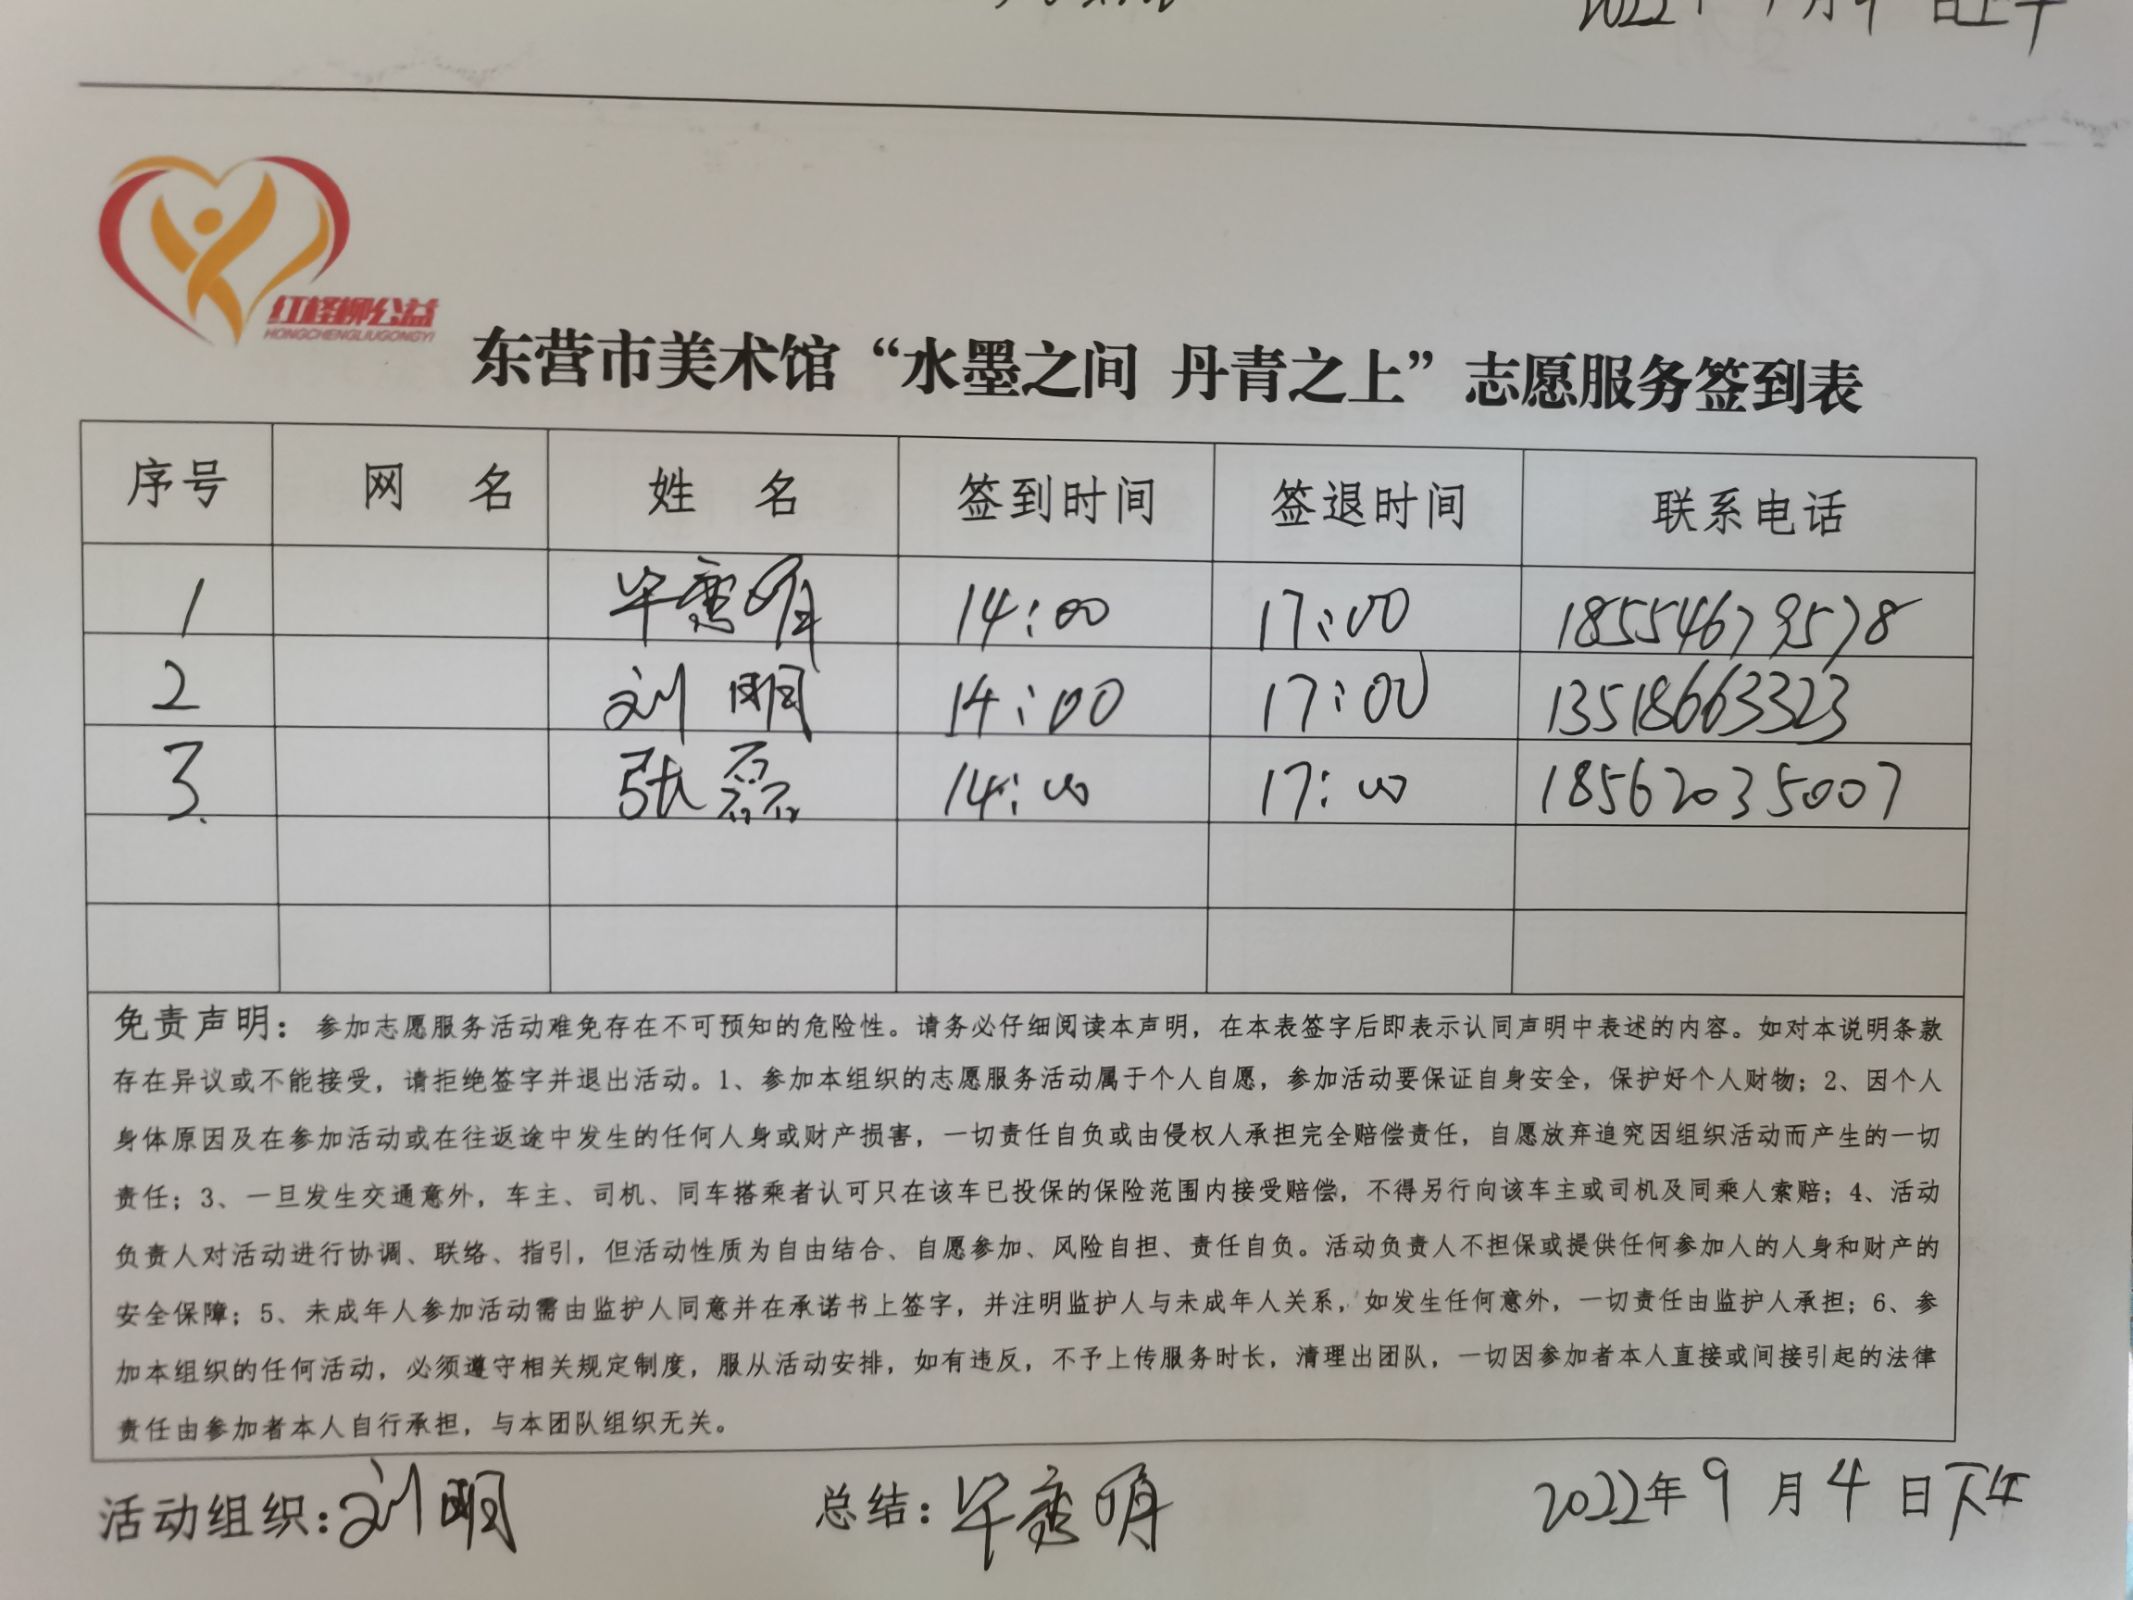 日上午
红柽柳公益
HONGCHENGLIUGONGYI
东营市美术馆“水墨之间 丹青之上”志愿服务签到表
序号 网 名 姓 名 签到时间 签退时间 联系电话
1 毕 14:00 17:00 18554679578
2 刘明 14:00 17:00 13518663323
3. 张磊 14:00 17:00 18562035007
免责声明：参加志愿服务活动难免存在不可预知的危险性。请务必仔细阅读本声明，在本表签字后即表示认同声明中表述的内容。如对本说明条款
存在异议或不能接受，请拒绝签字并退出活动。1、参加本组织的志愿服务活动属于个人自愿，参加活动要保证自身安全，保护好个人财物；2、因个人
身体原因及在参加活动或在往返途中发生的任何人身或财产损害，一切责任自负或由侵权人承担完全赔偿责任，自愿放弃追究因组织活动而产生的一切
责任；3、一旦发生交通意外，车主、司机、同车搭乘者认可只在该车已投保的保险范围内接受赔偿，不得另行向该车主或司机及同乘人索赔；4、活动
负责人对活动进行协调、联络、指引，但活动性质为自由结合、自愿参加、风险自担、责任自负。活动负责人不担保或提供任何参加人的人身和财产的
安全保障；5、未成年人参加活动需由监护人同意并在承诺书上签字，并注明监护人与未成年人关系，如发生任何意外，一切责任由监护人承担；6、参
加本组织的任何活动，必须遵守相关规定制度，服从活动安排，如有违反，不予上传服务时长，清理出团队，一切因参加者本人直接或间接引起的法律
责任由参加者本人自行承担，与本团队组织无关。
活动组织：刘明 总结：毕 明 2022年9月4日下午